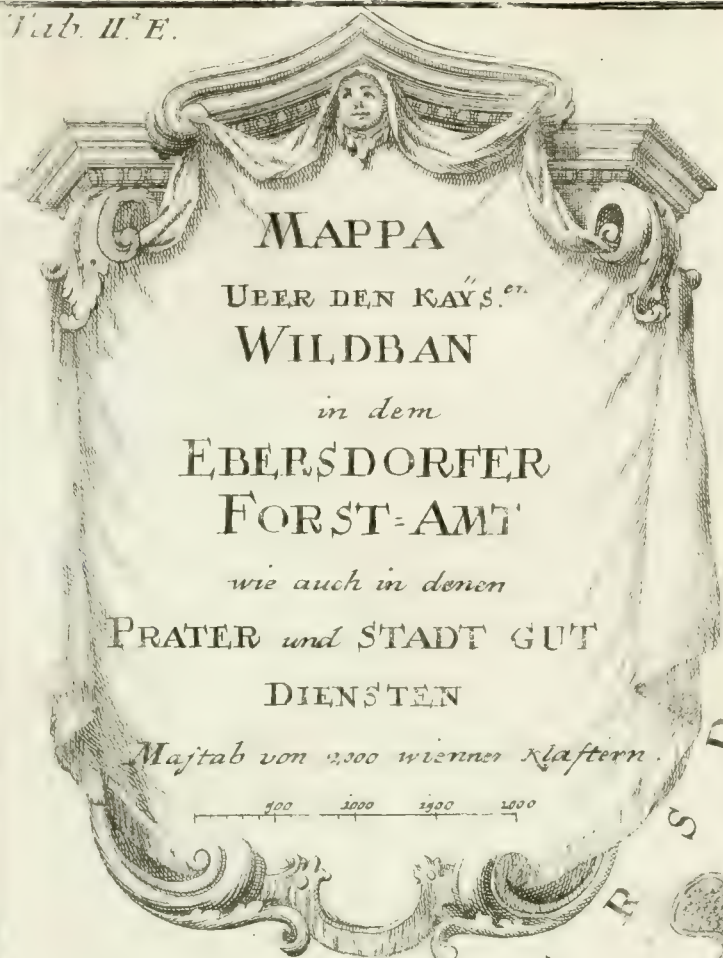 Tab. II.ª E.
MAPPA
UBER DEN KAŸS.en
WILDBAN
in dem
EBERSDORFER
FORST=AMT
wie auch in denen
PRATER und STADT GUT
DIENSTEN
Maſtab von 2000 wienner Klaftern.
500 1000 1500 2000
D
S
R